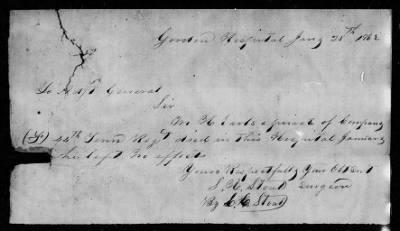 Gordon Hospital Jany 25th 1862
To Adjt General
Sir
M H a private of Company
44th Tenn Regt died in this Hospital January
he left no effects
Yours Respectfully Your Obtent
S. H. Stout Surgeon
By Stout